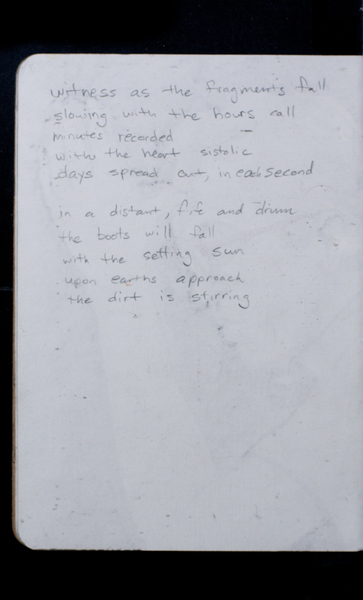 witness as the fragments fall
slowing with the hours call
minutes recorded
with the heart sistolic
days spread out, in each second
in a distant, fife and drum
the boots will fall
with the setting sun
upon earths approach
the dirt is stirring